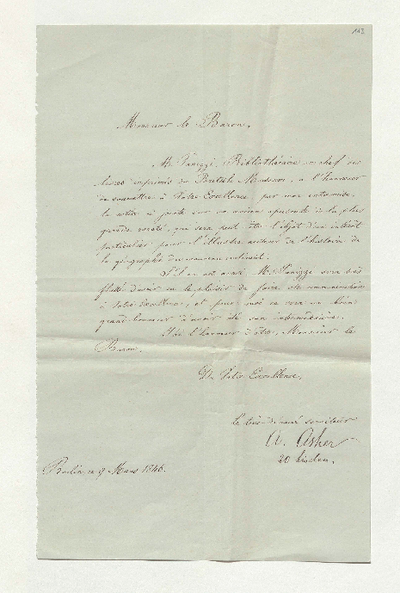 112
Monsieur le Baron,
M. Panizzi, Bibliothécaire en chef des
livres imprimés du British Museum, a l'honneur
de soumettre à Votre Excellence, par mon entremise,
la notice ci jointe sur un
grande rareté, qui sera peut être l'objet d'un intérêt
particulier pour l'illustre auteur de l'histoire de
la géographie du nouveau continent.
S'il en est ainsi, M. Panizzi sera très
flatté d'avoir eu le plaisir de faire
à Votre Excellence, et pour moi ce sera un bien
grand honneur d'avoir été son intermédiaire.
J'ai l'honneur d'être, Monsieur le
Baron,
De Votre Excellence,
le très dévoué serviteur
A. Asher
20 Linden.
Berlin ce 9 Mars 1846.